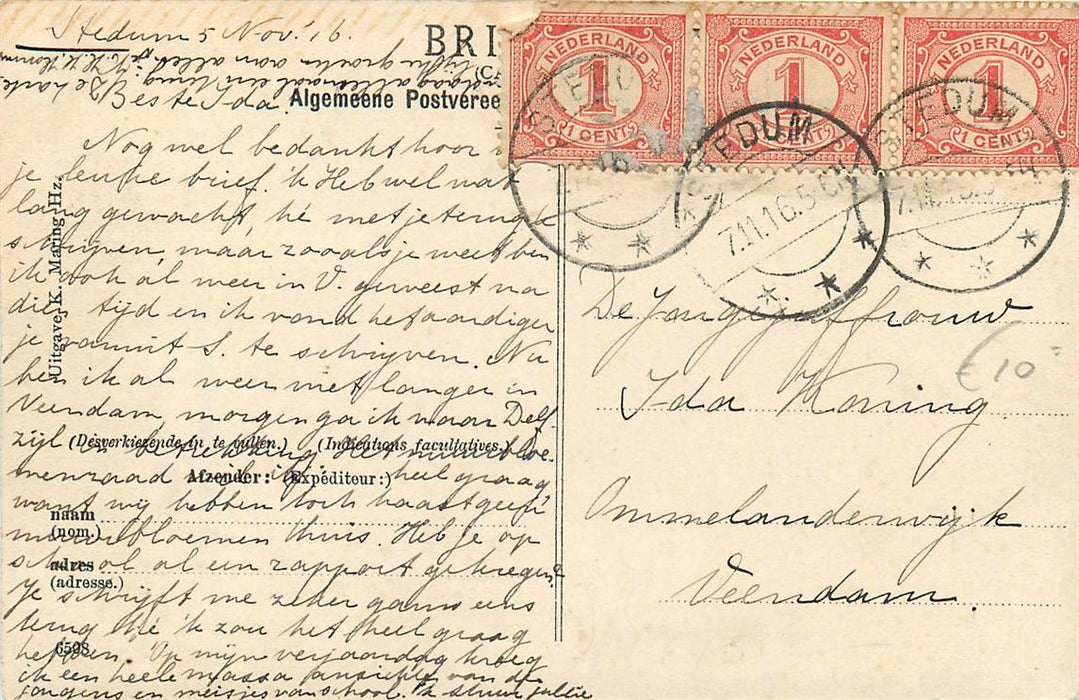 Stedum 5 Nov. '16.
BRI
Algemeene Postveree
Beste Ida
Nog wel bedankt hoor
je leuke brief. 'k Heb wel wat
lang gewacht hè met je terug te
schrijven, maar zooals je weet ben
ik ook al weer in V. geweest na
die tijd en ik vond het aardiger
je vanuit S. te schrijven. Nu
ben ik al weer niet langer in
Veendam, morgen ga ik naar Delf-
zijl
(Desverkiezende in te vullen.) (Indications facultatives.)
heel graag
Afzender: (Expéditeur:)
want wij hebben toch haast geen
naam
(nom.)
muurbloemen thuis. Heb je op
school al een rapport gekregen?
adres
(adresse.)
Je schrijft me zeker gauw eens
terug hè 'k zou het heel graag
hebben. Op mijn verjaardag kreeg
6598
ik een heele massa ansichten van de
jongens en meisjes van school. 'k stuur jullie
Uitgave K. Maring Hz.
NEDERLAND
1
1 CENT
NEDERLAND
1
1 CENT
NEDERLAND
1
1 CENT
STEDUM
STEDUM
7.11.16.5
STEDUM
7.11.16.5
De Jongejuffrouw
Ida Koning
€ 10
Ommelanderwijk
Veendam.